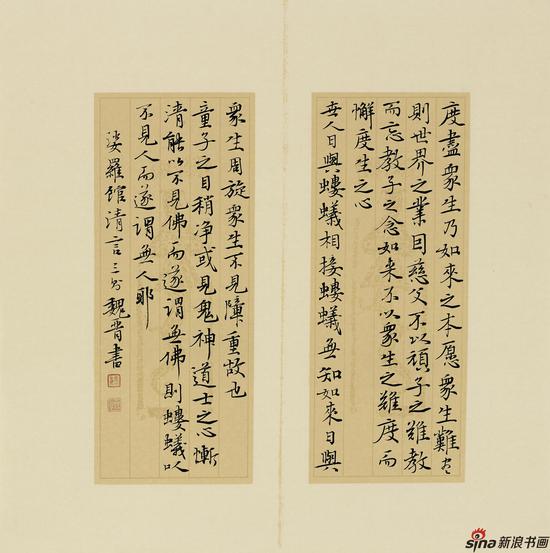 度盡衆生乃如來之本愿衆生難尽
則世界之業因慈父不以頑子之難教
而忘教子之念如来不以衆生之難度而
懈度生之心
世人日與螻蟻相接螻蟻無知如来日與
衆生周旋衆生不見障重故也
童子之目稍净或見鬼神道士之心漸
清能以不見佛而遂謂無佛則螻蟻以
不見人而遂謂無人耶
娑羅館清言三則魏晋書
sina新浪书画